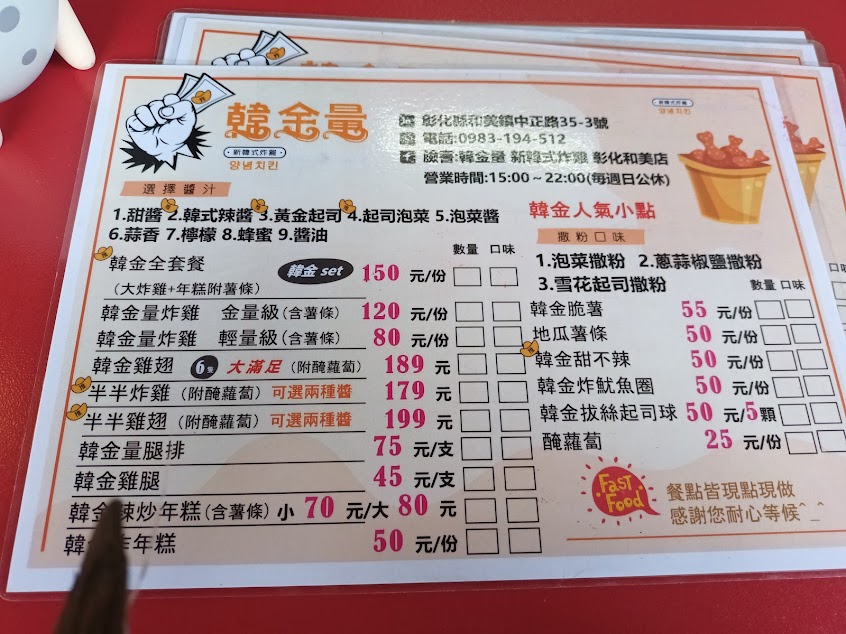 韓金量
·新韓式炸雞·
양념치킨
彰化縣和美鎮中正路35-3號
電話:0983-194-512
臉書:韓金量 新韓式炸雞 彰化和美店
營業時間:15:00～22:00(每週日公休)
新韓式炸雞
양념치킨
選擇醬汁
1.甜醬 2.韓式辣醬 3.黃金起司 4.起司泡菜 5.泡菜醬
6.蒜香 7.檸檬 8.蜂蜜 9.醬油
數量 口味
韓金全套餐 韓金 set 150 元/份
(大炸雞+年糕附薯條)
韓金量炸雞 金量級(含薯條) 120 元/份
韓金量炸雞 輕量級(含薯條) 80 元/份
韓金雞翅 6隻 大滿足 (附醃蘿蔔) 189 元
半半炸雞 (附醃蘿蔔) 可選兩種醬 179 元
半半雞翅 (附醃蘿蔔) 可選兩種醬 199 元
韓金量腿排 75 元/支
韓金雞腿 45 元/支
韓金辣炒年糕(含薯條) 小 70 元/大 80 元
韓金炸年糕 50 元/份
韓金人氣小點
撒粉口味
1.泡菜撒粉 2.蔥蒜椒鹽撒粉
3.雪花起司撒粉
數量 口味
韓金脆薯 55 元/份
地瓜薯條 50 元/份
韓金甜不辣 50 元/份
韓金炸魷魚圈 50 元/份
韓金拔絲起司球 50 元/5顆
醃蘿蔔 25 元/份
Fast
Food
餐點皆現點現做
感謝您耐心等候^_^